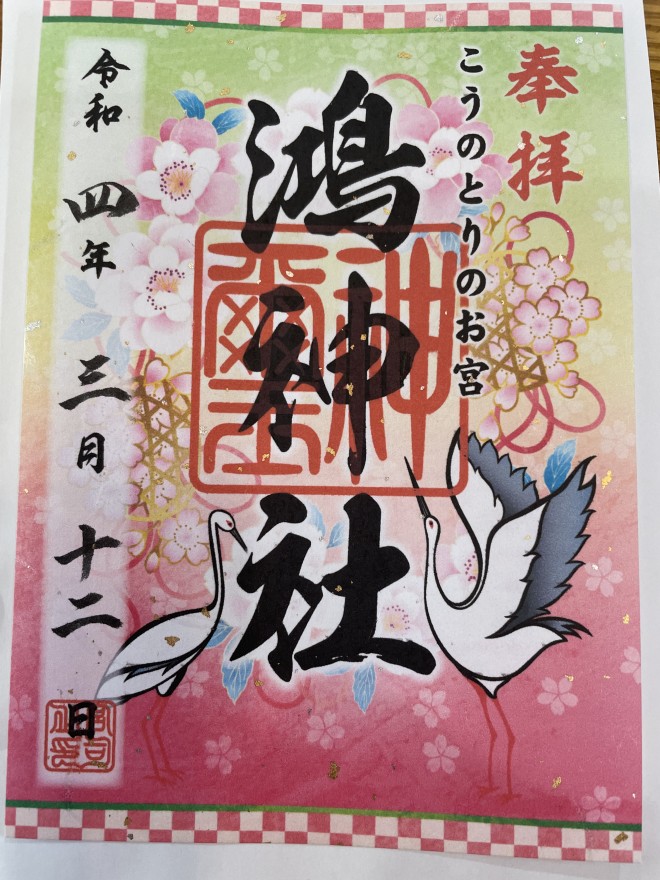 奉拝
こうのとりのお宮
鴻神社
令和四年三月十二日